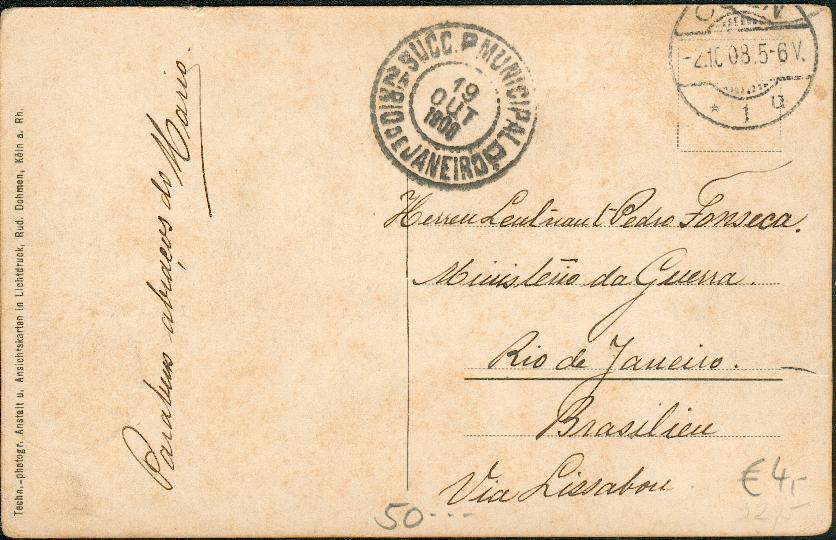 Techn.-photogr. Anstalt u. Ansichtskarten in Lichtdruck, Rud. Dohmen, Köln a. Rh.
Parabens abraços do Mario.
SUCC. MUNICIPAL
19
OUT
1908
RIO DE JANEIRO
-2.10.08.5-6V.
* 1 u
Herren Leutnant Pedro Fonseca.
Ministerio da Guerra.
Rio de Janeiro.
Brasilien
Via Lissabon
50---
€4,-